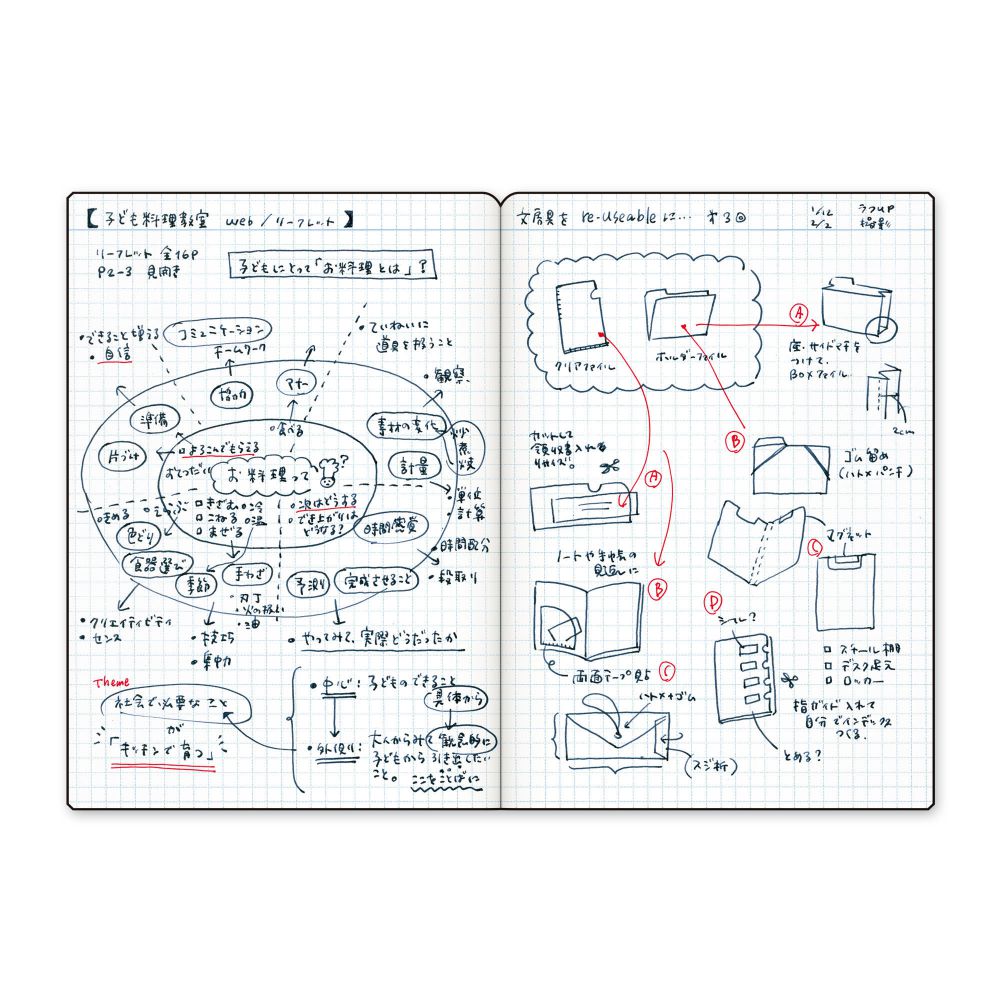 【子ども料理教室 web/リーフレット】
リーフレット 全16P
P2-3 見向き
子どもにとって「お料理とは」?
・できること増える
・自信
コミュニケーション
チームワーク
・ていねいに
道具を扱うこと
・観察
協力
マナー
準備
・食べる
素材の変化
炒
煮
焼
片づけ
・よろこんでもらえる
おてつだい
お料理って
?
計量
・単位
・計算
・きめる
・えらぶ
ロきざむ
ロこねる
ロまぜる
・冷
・温
・次はどうする
・でき上がりは
どうなる?
時間感覚
・時間配分
・段取り
色どり
食器選び
季節
手わざ
・刃丁
・火の扱い
・油
予測り
完成させること
・クリエイティビティ
・センス
・技巧
・集中力
・やってみて、実際どうだったか
Theme
社会で必要なこと
が
「キッチンで育つ」
・中心:子どものできること
具体から
・外側:大人からみて
観念的に
子どもから引き返したい
こと。
ここをことばに
文房具を re-useableに… オ3◎
1/12
2/2
ラフUP
撮影
クリアファイル
ホルダーファイル
A
底・サイドマチを
つけて、
BOXファイル
2cm
カットして
領収書入れる
リサイズ。
A
B
ゴム留め
(ハトメパンチ)
ノートや手帳の
見返しに
B
マグネット
C
両面テープ貼る
C
D
シール?
ロ スチール棚
ロ デスク足元
ロ ロッカー
ハトメ+ゴム
(スジ折)
指ガイド入れて
自分でインデックス
つくる。
とめる?